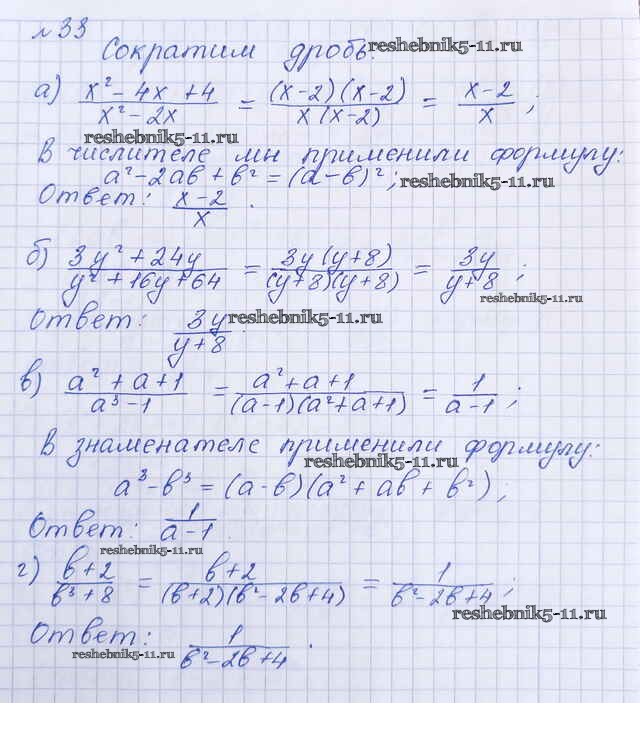 №33
Сократим дробь: reshebnik5-11.ru
а) x² - 4x + 4 / x² - 2x = (x-2)(x-2) / x(x-2) = x-2 / x ;
reshebnik5-11.ru
В числителе мы применили формулу:
a² - 2ab + b² = (a-b)²; reshebnik5-11.ru
Ответ: x-2 / x .
б) 3y² + 24y / y² + 16y + 64 = 3y(y+8) / (y+8)(y+8) = 3y / y+8 ;
reshebnik5-11.ru
Ответ: 3y / y+8 . reshebnik5-11.ru
в) a² + a + 1 / a³ - 1 = a² + a + 1 / (a-1)(a²+a+1) = 1 / a-1 ;
В знаменателе применили формулу:
reshebnik5-11.ru
a³ - b³ = (a-b)(a² + ab + b²);
Ответ: 1 / a-1 .
reshebnik5-11.ru
г) b+2 / b³+8 = b+2 / (b+2)(b²-2b+4) = 1 / b²-2b+4 ;
reshebnik5-11.ru
Ответ: 1 / b²-2b+4 .
reshebnik5-11.ru